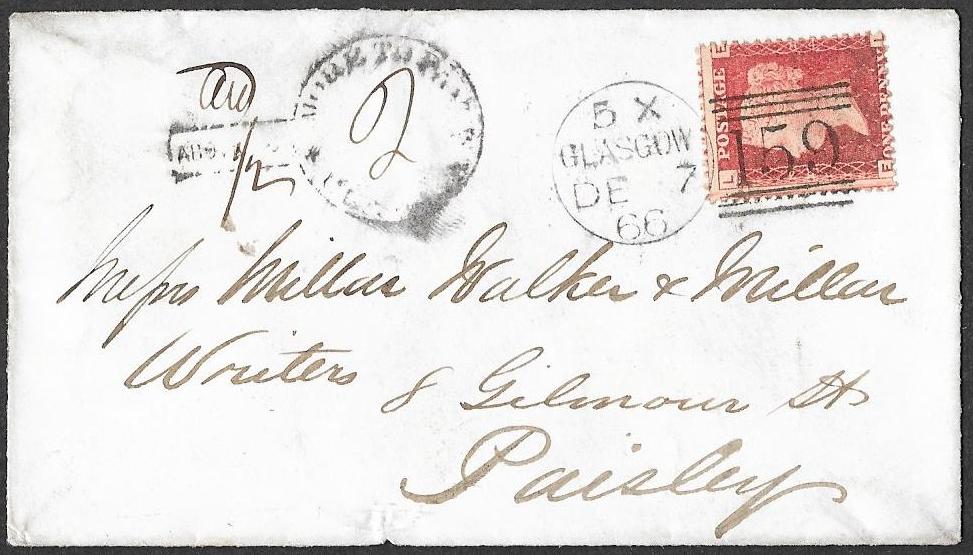 MORE TO PAY
2
1/2
5 X
GLASGOW
DE 7
66
POSTAGE
ONE PENNY
E
L
L
E
159
Messrs Millar Walker & Millar
Writers 8 Gilmour St
Paisley